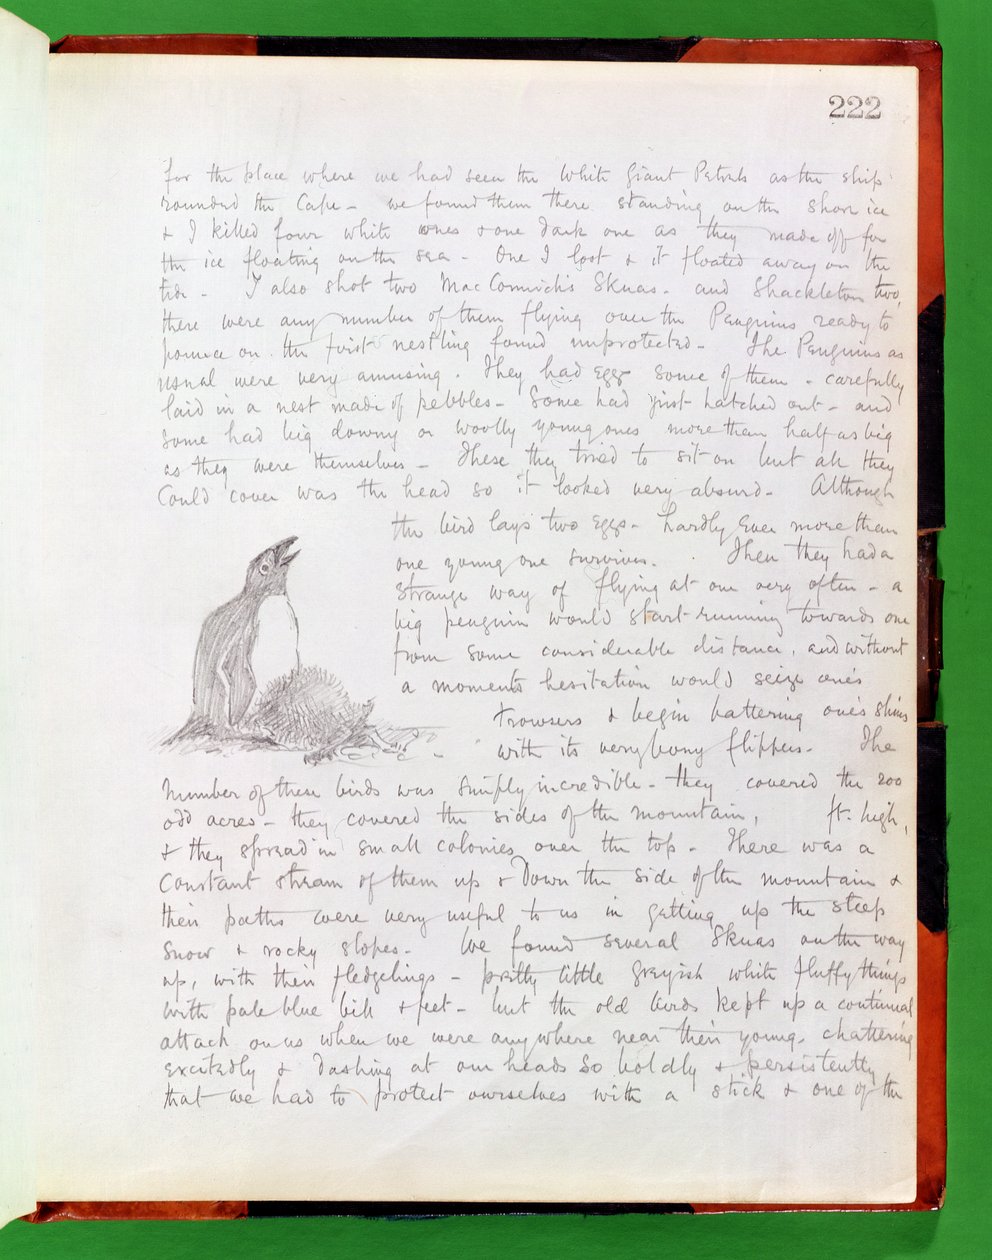 222
for the place where we had seen the White Giant Petrels as the ship
rounded the Cape - we found them there standing on the shore ice
& I killed four white ones & one dark one as they made off for
the ice floating on the sea - One I lost & it floated away on the
tide - I also shot two MacCormick's Skuas - and Shackleton two,
there were any number of them flying over the Penguins ready to
pounce on the first nestling found unprotected - The Penguins as
usual were very amusing. They had eggs some of them - carefully
laid in a nest made of pebbles - Some had just hatched out - and
some had big downy or woolly young ones more than half as big
as they were themselves - These they tried to sit on but all they
could cover was the head so it looked very absurd - Although
the bird lays two eggs - hardly ever more than
one young one survives. Then they had a
strange way of flying at one very often - a
big penguin would start running towards one
from some considerable distance, and without
a moments hesitation would seize one's
trowsers & begin battering one's shins
with its very bony flippers - The
number of these birds was simply incredible - they covered the 200
odd acres - they covered the sides of the mountain, ft. high,
& they spread in small colonies over the top - There was a
constant stream of them up & down the side of the mountain &
their paths were very useful to us in getting up the steep
snow & rocky slopes - We found several Skuas on the way
up, with their fledgelings - pretty little greyish white fluffy things
with pale blue bill & feet - but the old birds kept up a continual
attack on us when we were anywhere near their young, chattering
excitedly & dashing at our heads so boldly & persistently
that we had to protect ourselves with a stick & one of the